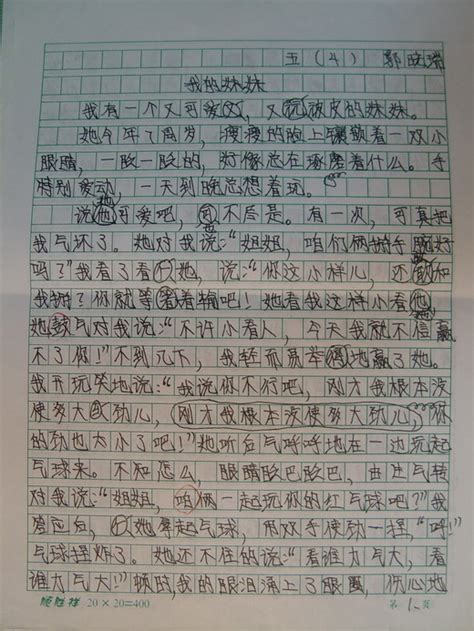 五（4） 郭
我的妹妹
我有一个又可爱，又顽皮的妹妹。
她今年7周岁，瘦瘦的脸上镶嵌着一双小
眼睛，一眨一眨的，好像总在琢磨着什么。手
特别爱动，一天到晚总想着玩。
说她可爱吧，可不尽是。有一次，可真把
我气坏了。她对我说：“姐姐，咱们俩掰手腕好
吗？”我看了看她，说：“你这小样儿，还和
我掰？你就等着输吧！她看我这样小看她，
她鼓气对我说：“不许小看人，今天我就不信赢
不了你！”不到几下，我轻而易举地赢了她。
我开玩笑地说：“我说你不行吧，我根本没
使多大劲儿，刚才我根本没使多大劲儿，你
的劲也太小了吧！”她听后气呼呼地在一边玩起
气球来。不知怎么，眼睛眨巴眨巴，由生气转
对我说：“姐姐，咱俩一起玩你的红气球吧？”我
答应后，她拿起气球，用双手使劲一捏，“呼！”
气球捏炸了。她还不住的说：“看谁力气大，看
谁力气大！”顿时，我的眼泪涌上了眼圈，伤心地
20×20=400 第1页